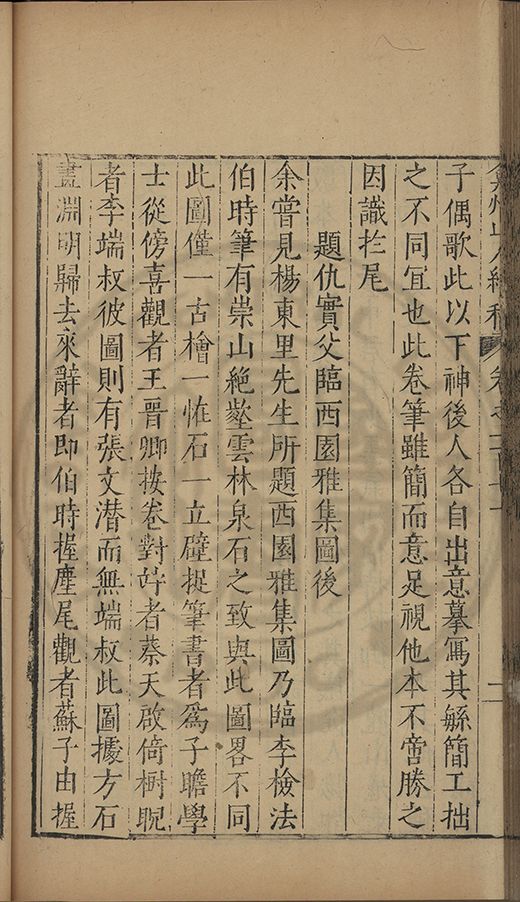 弇州山人續稿 卷之一百 二
子偶歌此以下神後人各自出意摹寫其緐簡工拙
之不同冝也此卷筆雖簡而意足視他本不啻勝之
因識於尾
題仇實父臨西園雅集圖後
余嘗見楊東里先生所題西園雅集圖乃臨李檢法
伯時筆有崇山絶壑雲林泉石之致與此圖畧不同
此圖僅一古檜一恠石一立壁捉筆書者為子瞻學
士從傍喜觀者王晉卿按卷對竚者蔡天啟倚樹睨
者李端叔彼圖則有張文潜而無端叔此圖據方石
畫淵明歸去來辭者即伯時握麈尾觀者蘇子由握